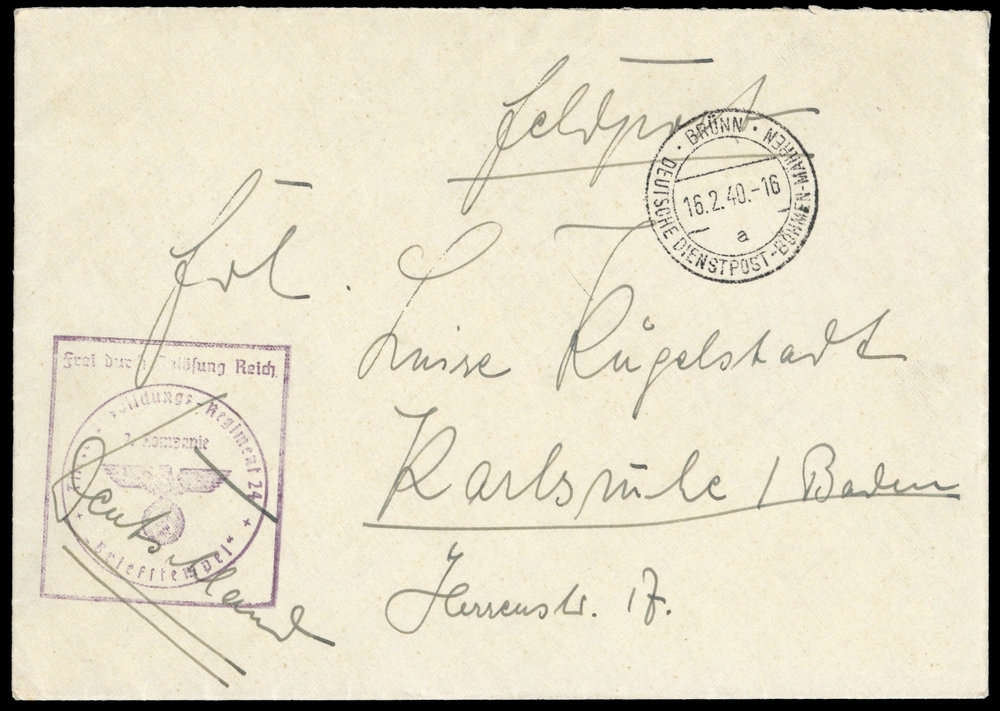 Feldpost
BRÜNN
DEUTSCHE DIENSTPOST-BÖHMEN-MÄHREN
16.2.40.-16
a
Frl. Luise Rügelstadt
Karlsruhe / Baden
Herrenstr. 17.
Frei durch Ablösung Reich
-Regiment 24
Kompanie
"Briefstempel"
Deutschland